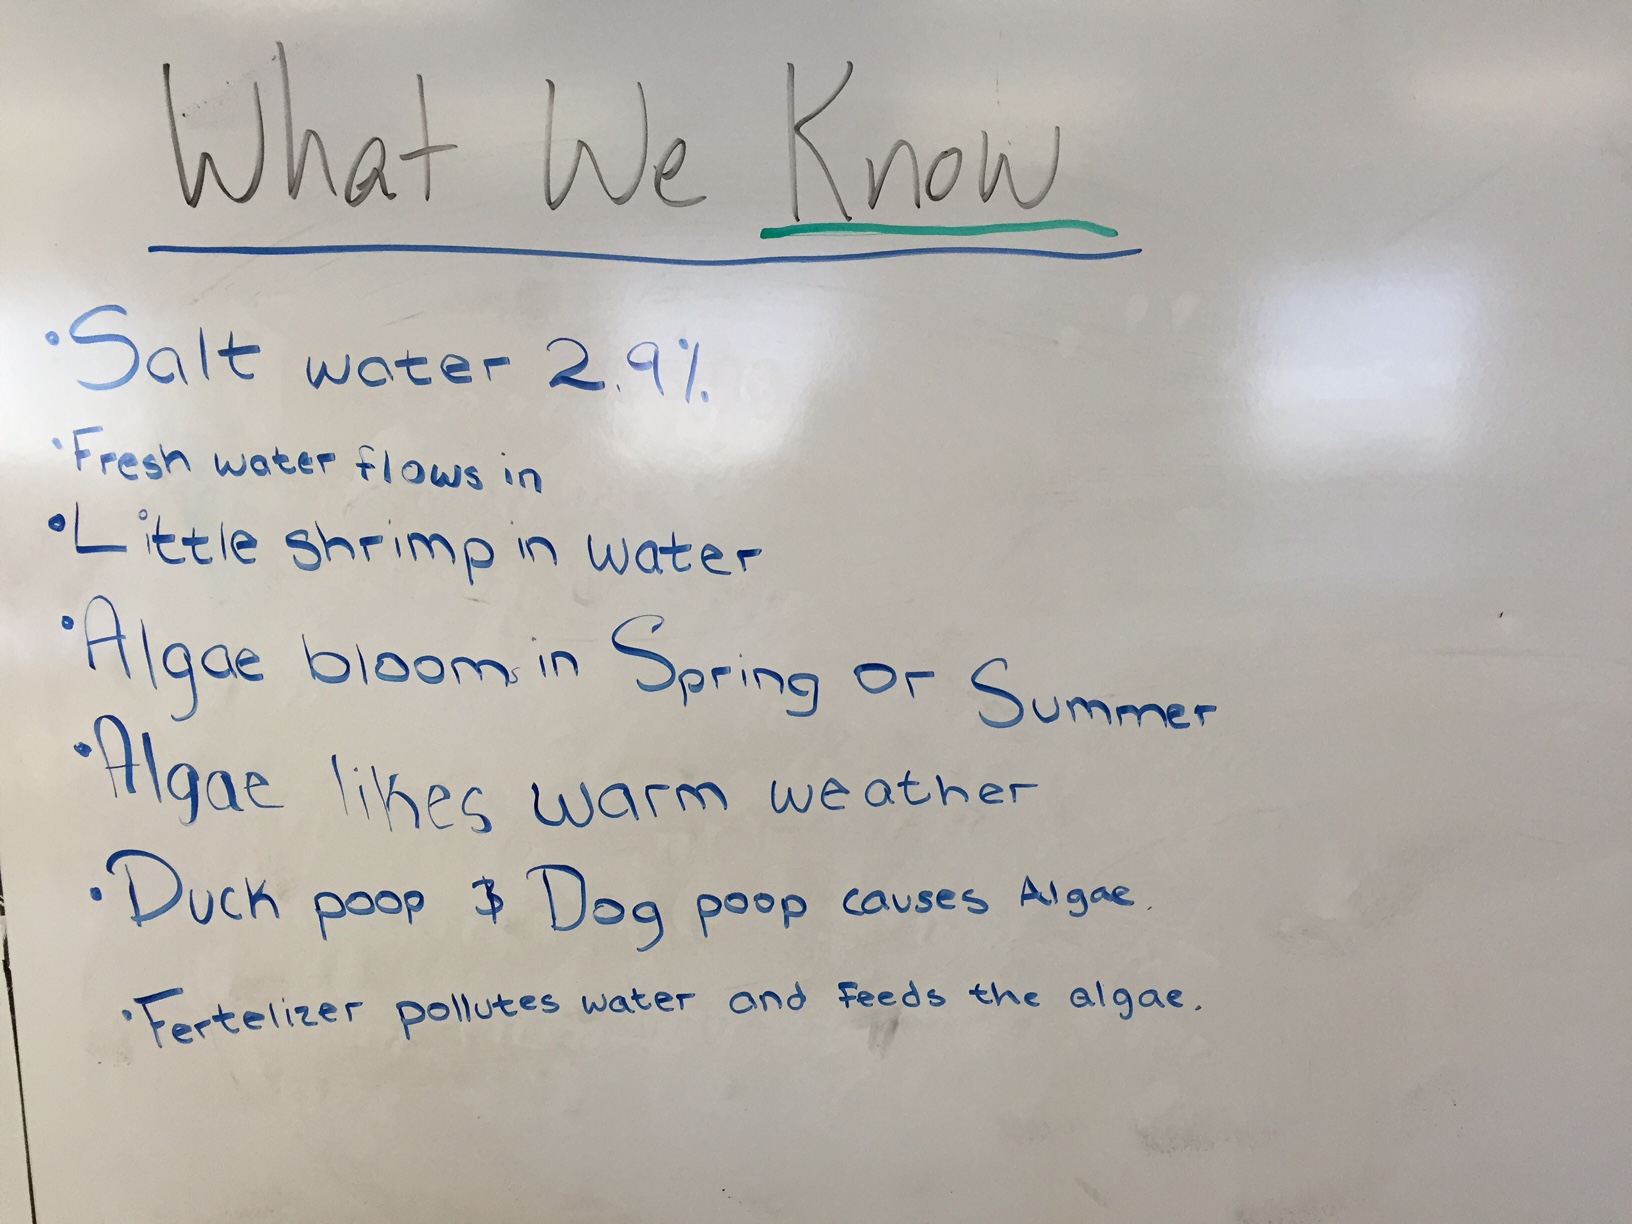 What We Know
• Salt water 2.9%
• Fresh water flows in
• Little shrimp in water
• Algae bloom in Spring or Summer
• Algae likes warm weather
• Duck poop & Dog poop causes Algae.
• Fertelizer pollutes water and feeds the algae.